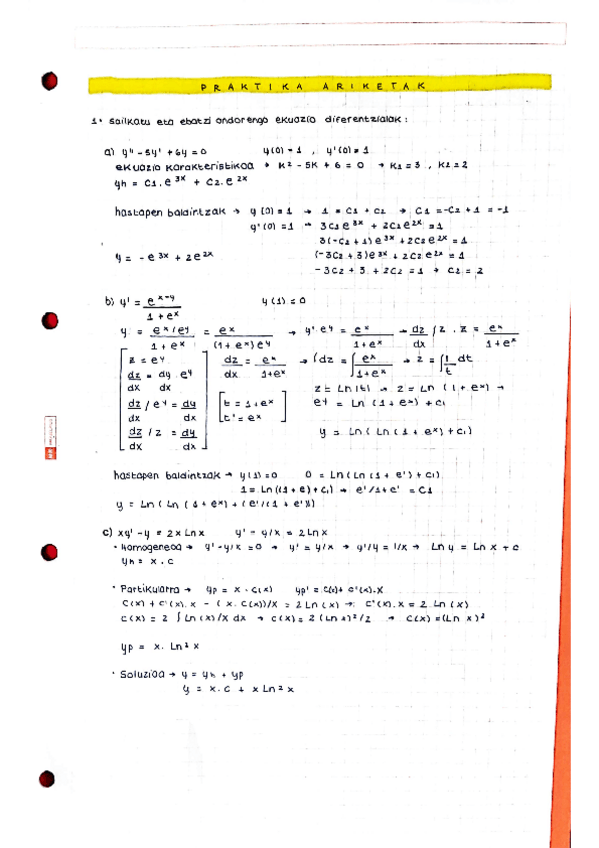 PRAKTIKA ARIKETAK
1. Sailkatu eta ebatzi ondorengo ekuazio diferentzialak:
a) y'' - 5y' + 6y = 0 y(0) = 1 , y'(0) = 1
ekuazio karakteristikoa → k² - 5k + 6 = 0 → k1 = 3 , k2 = 2
yh = C1.e^3x + C2.e^2x
hastapen baldintzak → y(0) = 1 → 1 = C1 + C2 → C1 = -C2 + 1 = -1
y'(0) = 1 → 3C1e^3x + 2C2e^2x = 1
3(-C2+1)e^3x + 2C2e^2x = 1
y = -e^3x + 2e^2x (-3C2+3)e^3x + 2C2e^2x = 1
-3C2 + 3 + 2C2 = 1 → C2 = 2
b) y' = e^x-y / 1+e^x y(1) = 0
y = e^x/e^y / 1+e^x = e^x / (1+e^x)e^y → y' e^y = e^x / 1+e^x → dz/dx /z . z = e^x / 1+e^x
z = e^y dz/dx = e^x / 1+e^x → ∫dz = ∫ e^x / 1+e^x → z = ∫ 1/t dt
dz/dx = dy/dx e^y
dz/dx / e^y = dy/dx t = 1+e^x z = Ln|t| → z = Ln (1+e^x) →
t' = e^x e^y = Ln (1+e^x) + C1
dz/dx / z = dy/dx y = Ln(Ln(1+e^x)+C1)
hastapen baldintzak → y(1) = 0 0 = Ln(Ln(1+e')+C1)
1 = Ln((1+e)+C1) → e'/1+e' = C1
y = Ln(Ln(1+e^x)+(e'/(1+e'))
c) xy' - y = 2xLnx y' - y/x = 2Lnx
· Homogeneoa → y' - y/x = 0 → y' = y/x → y'/y = 1/x → Ln y = Ln x + c
yh = x.c
· Partikularra → yp = x . C(x) yp' = C(x) + C'(x).x
C(x) + C'(x).x - (x.C(x))/x = 2Ln(x) → C'(x).x = 2 Ln(x)
C(x) = 2 ∫Ln(x)/x dx → C(x) = 2(Ln x)²/2 → C(x) = (Ln x)²
yp = x. Ln²x
· Soluzioa → y = yh + yp
y = x.c + xLn²x